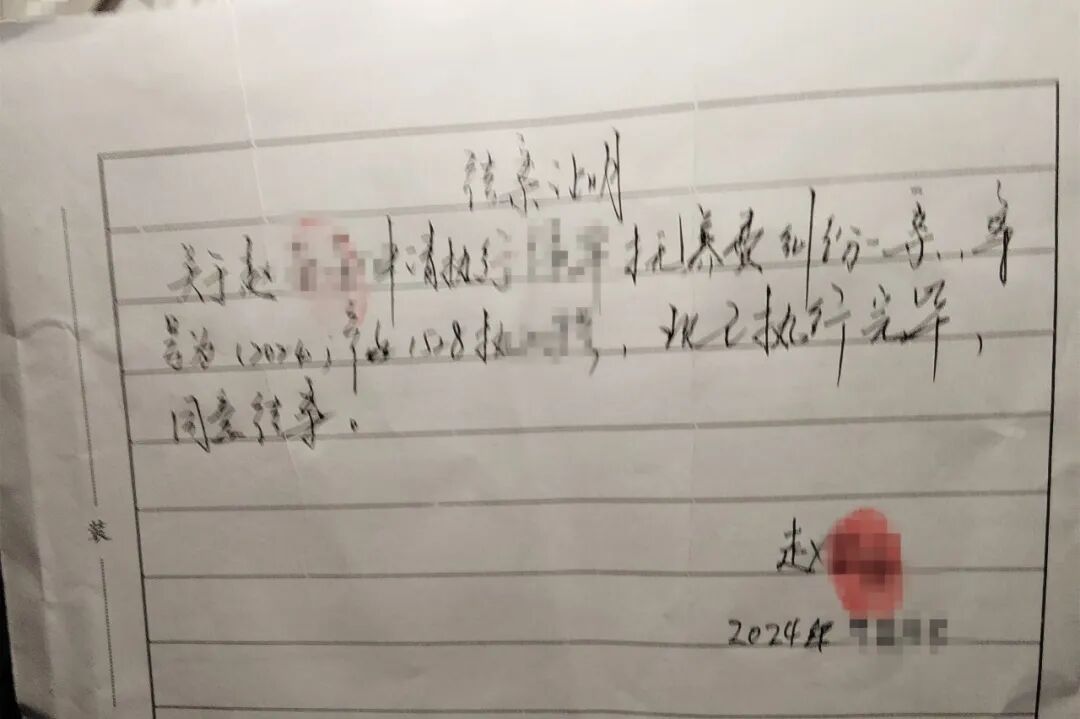 结案证明
关于赵 申请执行 抚养费纠纷一案,案
号为(2024) 0158执 ,现已执行完毕,
同意结案。
装
赵
2024年